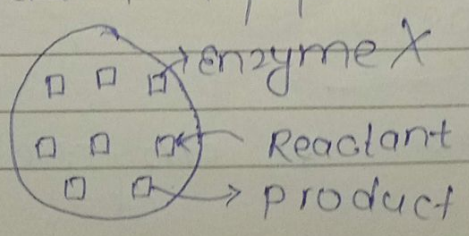 enzyme X
Reactant
product